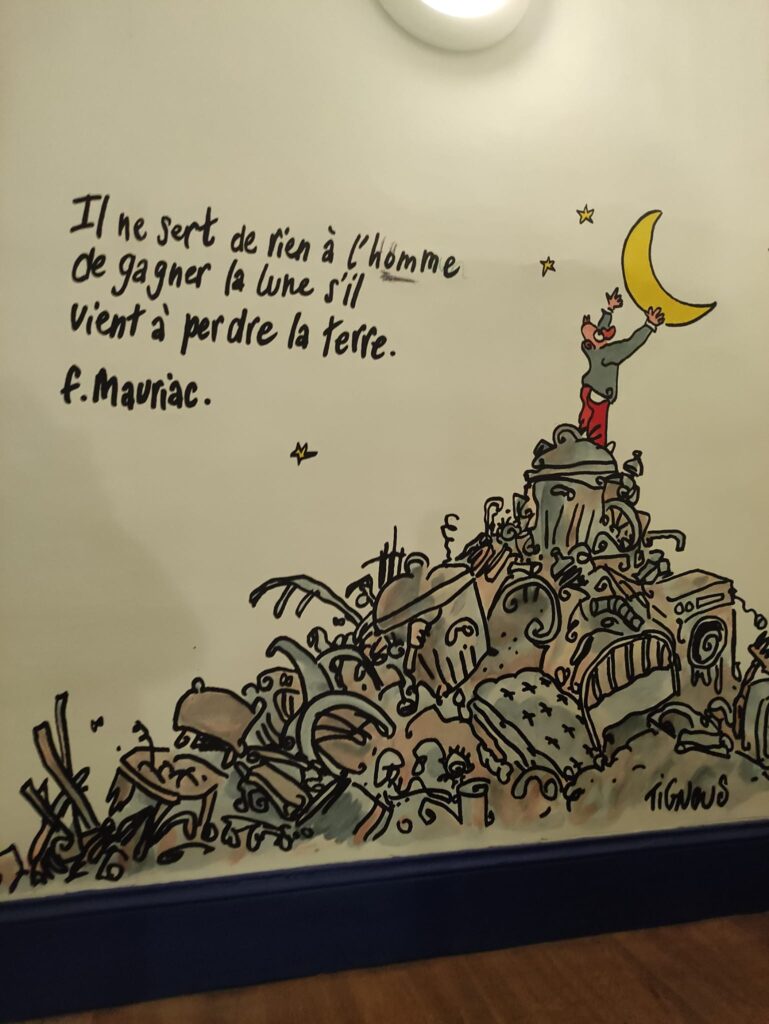 Il ne sert de rien à l'homme
de gagner la lune s'il
vient à perdre la terre.
f. Mauriac.
TiGNOUS